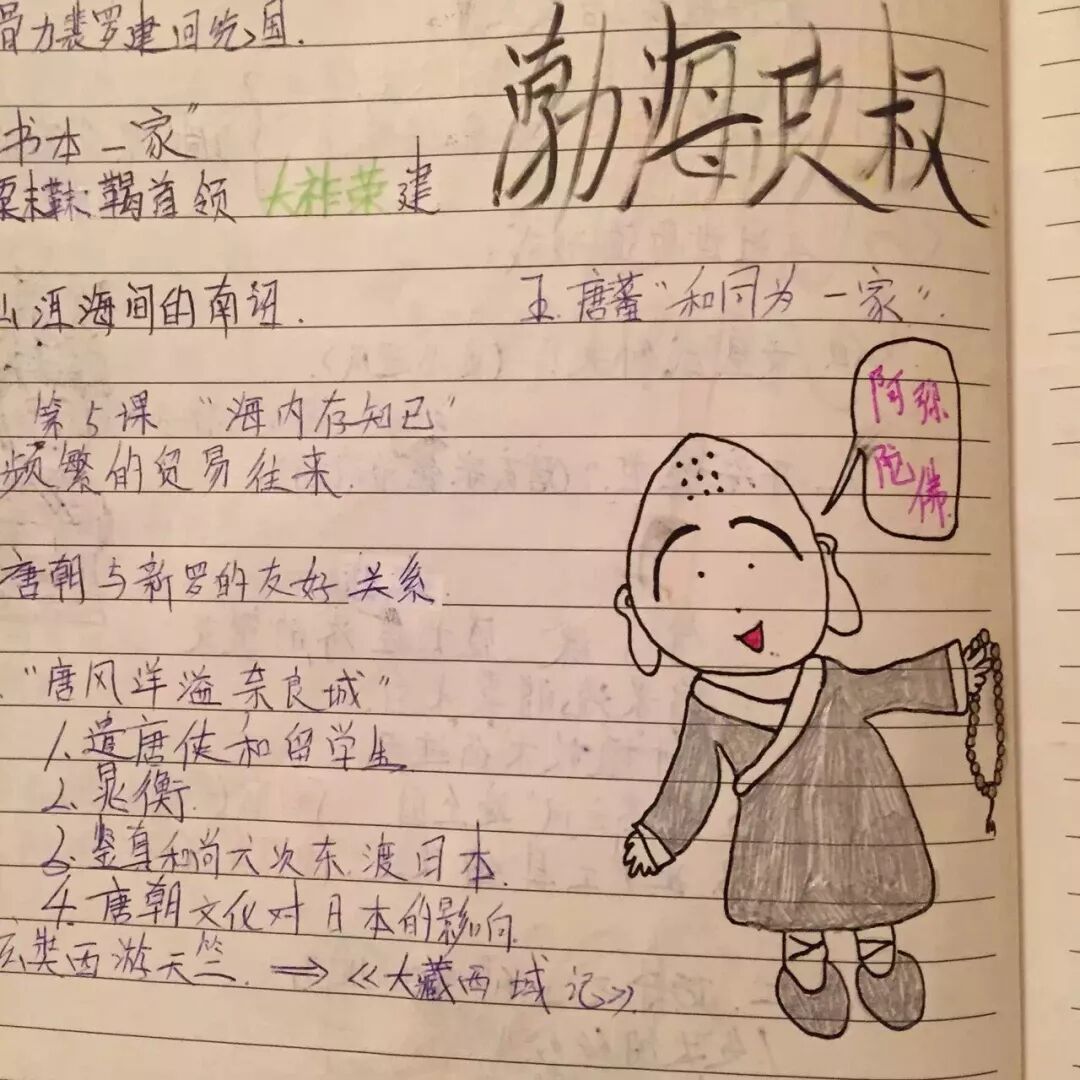 骨力裴罗建回纥国.
渤海
书本一家”
粟末靺鞨首领 大祚荣建
山洱海间的南诏.
五.唐蕃“和同为一家”.
第5课 “海内存知己”
频繁的贸易往来.
阿弥
陀佛
唐朝与新罗的友好关系.
“唐风洋溢奈良城”
1.遣唐使和留学生
2.晁衡.
3.鉴真和尚六次东渡日本.
4.唐朝文化对日本的影响.
玄奘西游天竺. ⇒ 《大藏西域记》